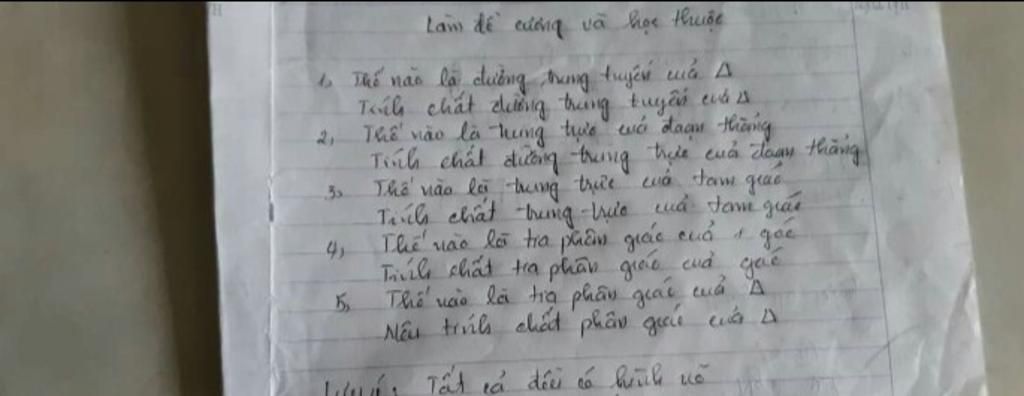 Làm đề cương và học thuộc
1, Thế nào là đường trung tuyến của Δ
Tính chất đường trung tuyến của Δ
2, Thế nào là trung trực của đoạn thẳng
Tính chất đường trung trực của đoạn thẳng
3, Thế nào là trung trực của tam giác
Tính chất trung trực của tam giác
4, Thế nào là tia phân giác của 1 góc
Tính chất tia phân giác của góc
5, Thế nào là tia phân giác của Δ
Nêu tính chất phân giác của Δ
Lưu ý: Tất cả đều có hình vẽ